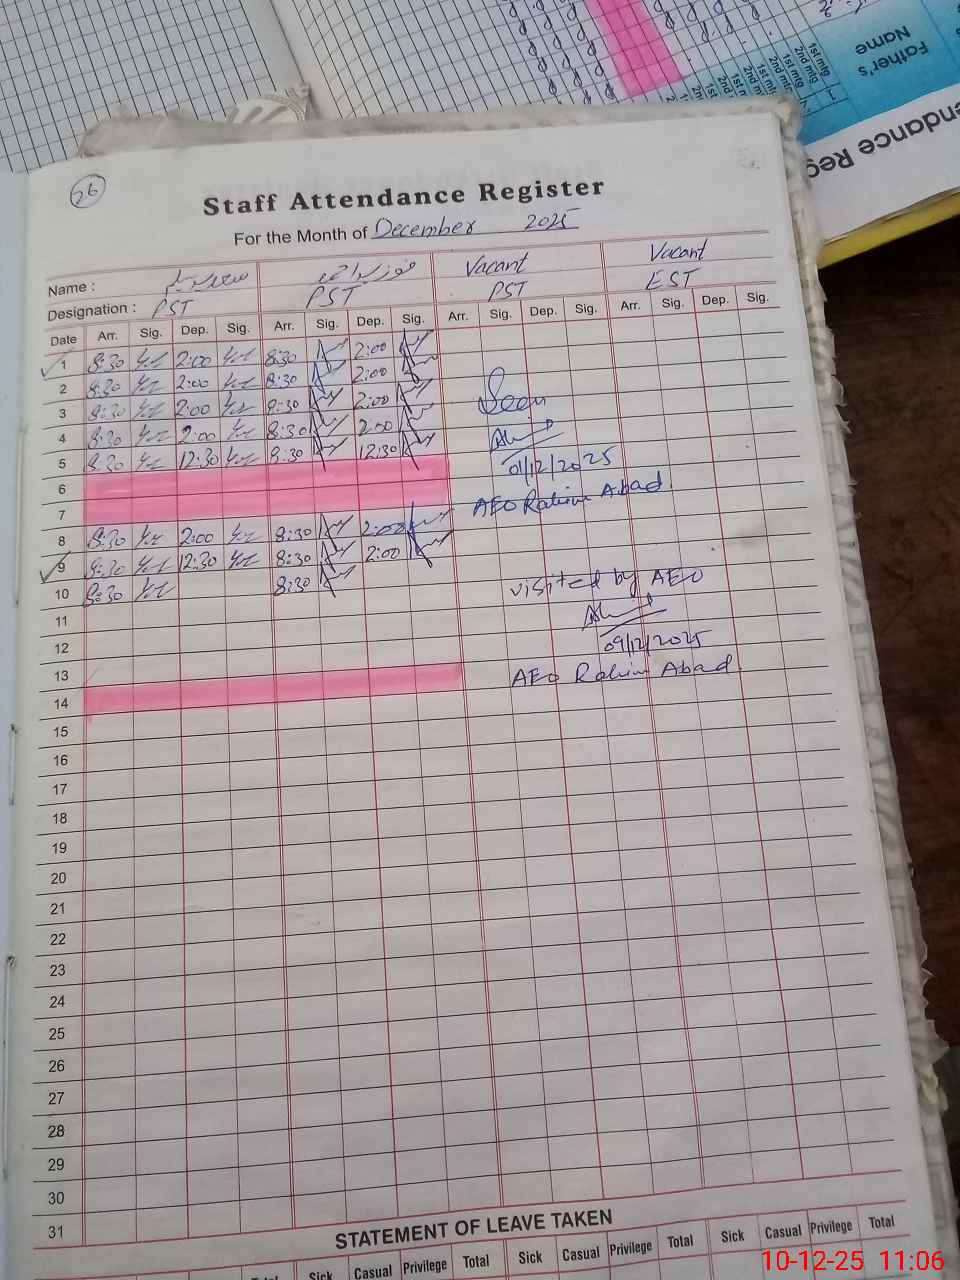 26
Staff Attendance Register
For the Month of December 2025
Name : Vacant Vacant
Designation : PST PST PST EST
Date Arr. Sig. Dep. Sig. Arr. Sig. Dep. Sig. Arr. Sig. Dep. Sig. Arr. Sig. Dep. Sig.
1 8:30 2:00 8:30 2:00
2 8:30 2:00 8:30 2:00
3 8:30 2:00 8:30 2:00
4 8:30 2:00 8:30 2:00
5 8:30 12:30 8:30 12:30
6
7
8 8:30 2:00 8:30 2:00
9 8:30 12:30 8:30 2:00
10 8:30 8:30
11
12
13
14
15
16
17
18
19
20
21
22
23
24
25
26
27
28
29
30
31
Seen
01/12/2025
AEO Rahim Abad
visited by AEO
09/12/2025
AEO Rahim Abad
STATEMENT OF LEAVE TAKEN
Sick Casual Privilege Total Sick Casual Privilege Total Sick Casual Privilege Total
10-12-25 11:06
Father's
Name
1st mtg
2nd mtg
1st mtg
2nd mtg